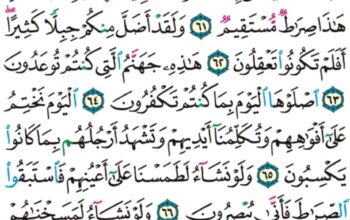 هَٰذَا صِرَٰطٌ مُّسْتَقِيمٌ ﴿٦١﴾ وَلَقَدْ أَضَلَّ مِنكُمْ جِبِلًّا كَثِيرًا ۖ
أَفَلَمْ تَكُونُوا۟ تَعْقِلُونَ ﴿٦٢﴾ هَٰذِهِۦ جَهَنَّمُ ٱلَّتِى كُنتُمْ تُوعَدُونَ
﴿٦٣﴾ ٱصْلَوْهَا ٱلْيَوْمَ بِمَا كُنتُمْ تَكْفُرُونَ ﴿٦٤﴾ ٱلْيَوْمَ نَخْتِمُ
عَلَىٰٓ أَفْوَٰهِهِمْ وَتُكَلِّمُنَآ أَيْدِيهِمْ وَتَشْهَدُ أَرْجُلُهُم بِمَا كَانُوا۟
يَكْسِبُونَ ﴿٦٥﴾ وَلَوْ نَشَآءُ لَطَمَسْنَا عَلَىٰٓ أَعْيُنِهِمْ فَٱسْتَبَقُوا۟
ٱلصِّرَٰطَ فَأَنَّىٰ يُبْصِرُونَ ﴿٦٦﴾ وَلَوْ نَشَآءُ لَمَسَخْنَٰهُمْ